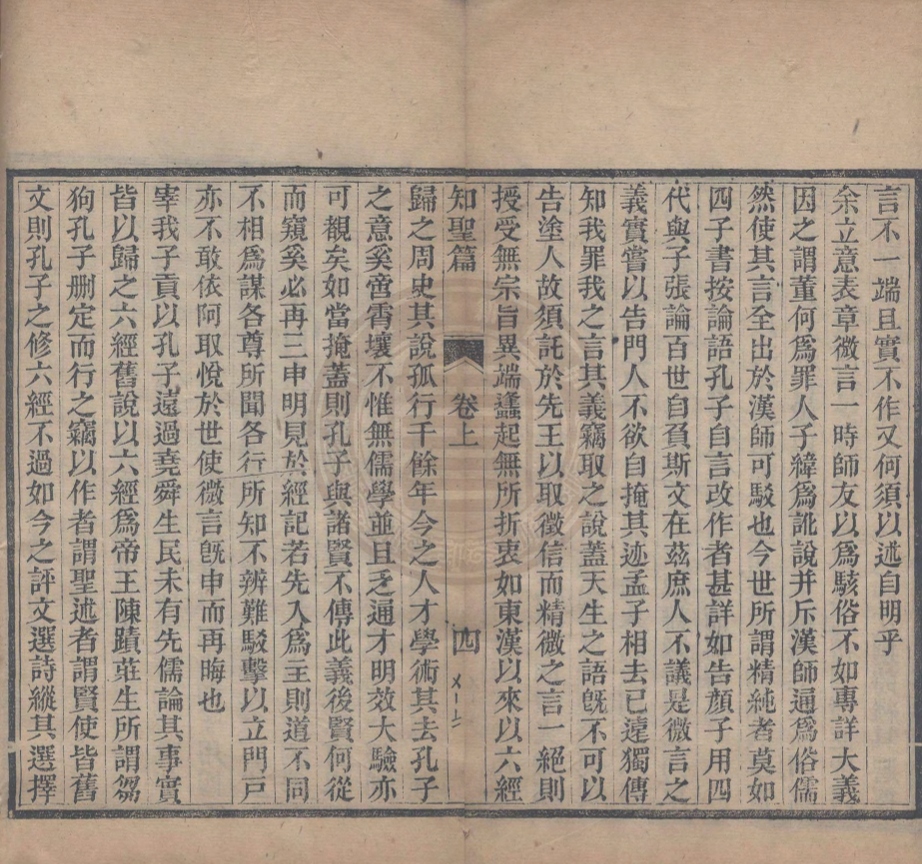 言不一端且實不作又何須以述自明乎
余立意表章微言一時師友以爲駭俗不如專詳大義
因之謂董何爲罪人子緯爲訛說并斥漢師通爲俗儒
然使其言全出於漢師可駁也今世所謂精純者莫如
四子書按論語孔子自言改作者甚詳如告顏子用四
代與子張論百世自負斯文在茲庶人不議是微言之
義實嘗以告門人不欲自掩其迹孟子相去已遠獨傳
知我罪我之言其義竊取之說蓋天生之語旣不可以
告塗人故須託於先王以取徵信而精微之言一絕則
授受無宗旨異端蠭起無所折衷如東漢以來以六經
知聖篇 卷上 四
歸之周史其說孤行千餘年今之人才學術其去孔子
之意奚啻霄壤不惟無儒學並且乏通才明效大驗亦
可觀矣如當掩蓋則孔子與諸賢不傳此義後賢何從
而窺奚必再三申明見於經記若先入爲主則道不同
不相爲謀各尊所聞各行所知不辨難駁擊以立門戸
亦不敢依阿取悅於世使微言旣申而再晦也
宰我子貢以孔子遠過堯舜生民未有先儒論其事實
皆以歸之六經舊說以六經爲帝王陳蹟莊生所謂芻
狗孔子删定而行之竊以作者謂聖述者謂賢使皆舊
文則孔子之修六經不過如今之評文選詩縱其選擇